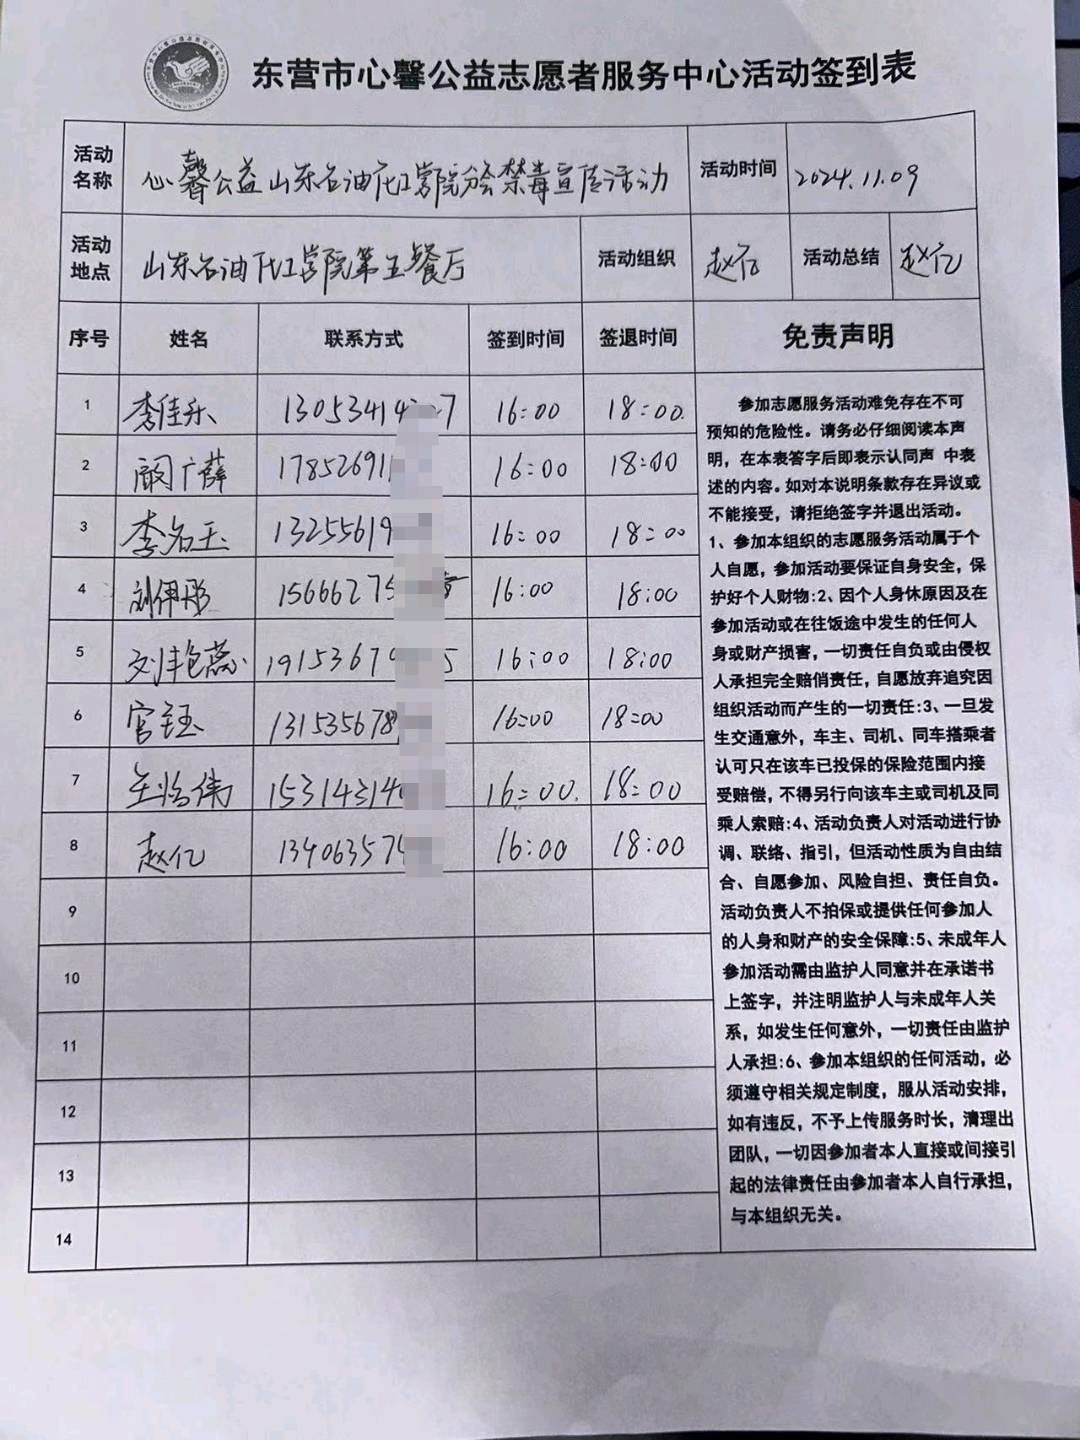 东营市心馨公益志愿者服务中心活动签到表
活动名称 心馨公益山东石油化工学院分会禁毒宣传活动 活动时间 2024.11.09
活动地点 山东石油化工学院第五餐厅 活动组织 赵亿 活动总结 赵亿
序号 姓名 联系方式 签到时间 签退时间 免责声明
1 李佳乐 13053414 7 16:00 18:00.
2 阚广薛 17852691 16:00 18:00
3 李名玉 13255619 16:00 18:00
4 刘伊彤 15666275 16:00 18:00
5 刘艳蕊 19153679 5 16:00 18:00
6 官钰 131535678 16:00 18:00
7 伟 15314314 16:00. 18:00
8 赵亿 13406357 16:00 18:00
9
10
11
12
13
14
参加志愿服务活动难免存在不可
预知的危险性。请务必仔细阅读本声
明，在本表答字后即表示认同声 中表
述的内容。如对本说明条款存在异议或
不能接受，请拒绝签字并退出活动。
1、参加本组织的志愿服务活动属于个
人自愿，参加活动要保证自身安全，保
护好个人财物:2、因个人身休原因及在
参加活动或在往饭途中发生的任何人
身或财产损害，一切责任自负或由侵权
人承担完全赔俏责任，自愿放弃追究因
组织活动而产生的一切责任:3、一旦发
生交通意外，车主、司机、同车搭乘者
认可只在该车已投保的保险范围内接
受赔偿，不得另行向该车主或司机及同
乘人索赔:4、活动负责人对活动进行协
调、联络、指引，但活动性质为自由结
合、自愿参加、风险自担、责任自负。
活动负责人不拍保或提供任何参加人
的人身和财产的安全保障:5、未成年人
参加活动需由监护人同意并在承诺书
上签字，并注明监护人与未成年人关
系，如发生任何意外，一切责任由监护
人承担:6、参加本组织的任何活动，必
须遵守相关规定制度，服从活动安排，
如有违反，不予上传服务时长，清理出
团队，一切因参加者本人直接或间接引
起的法律责任由参加者本人自行承担，
与本组织无关。